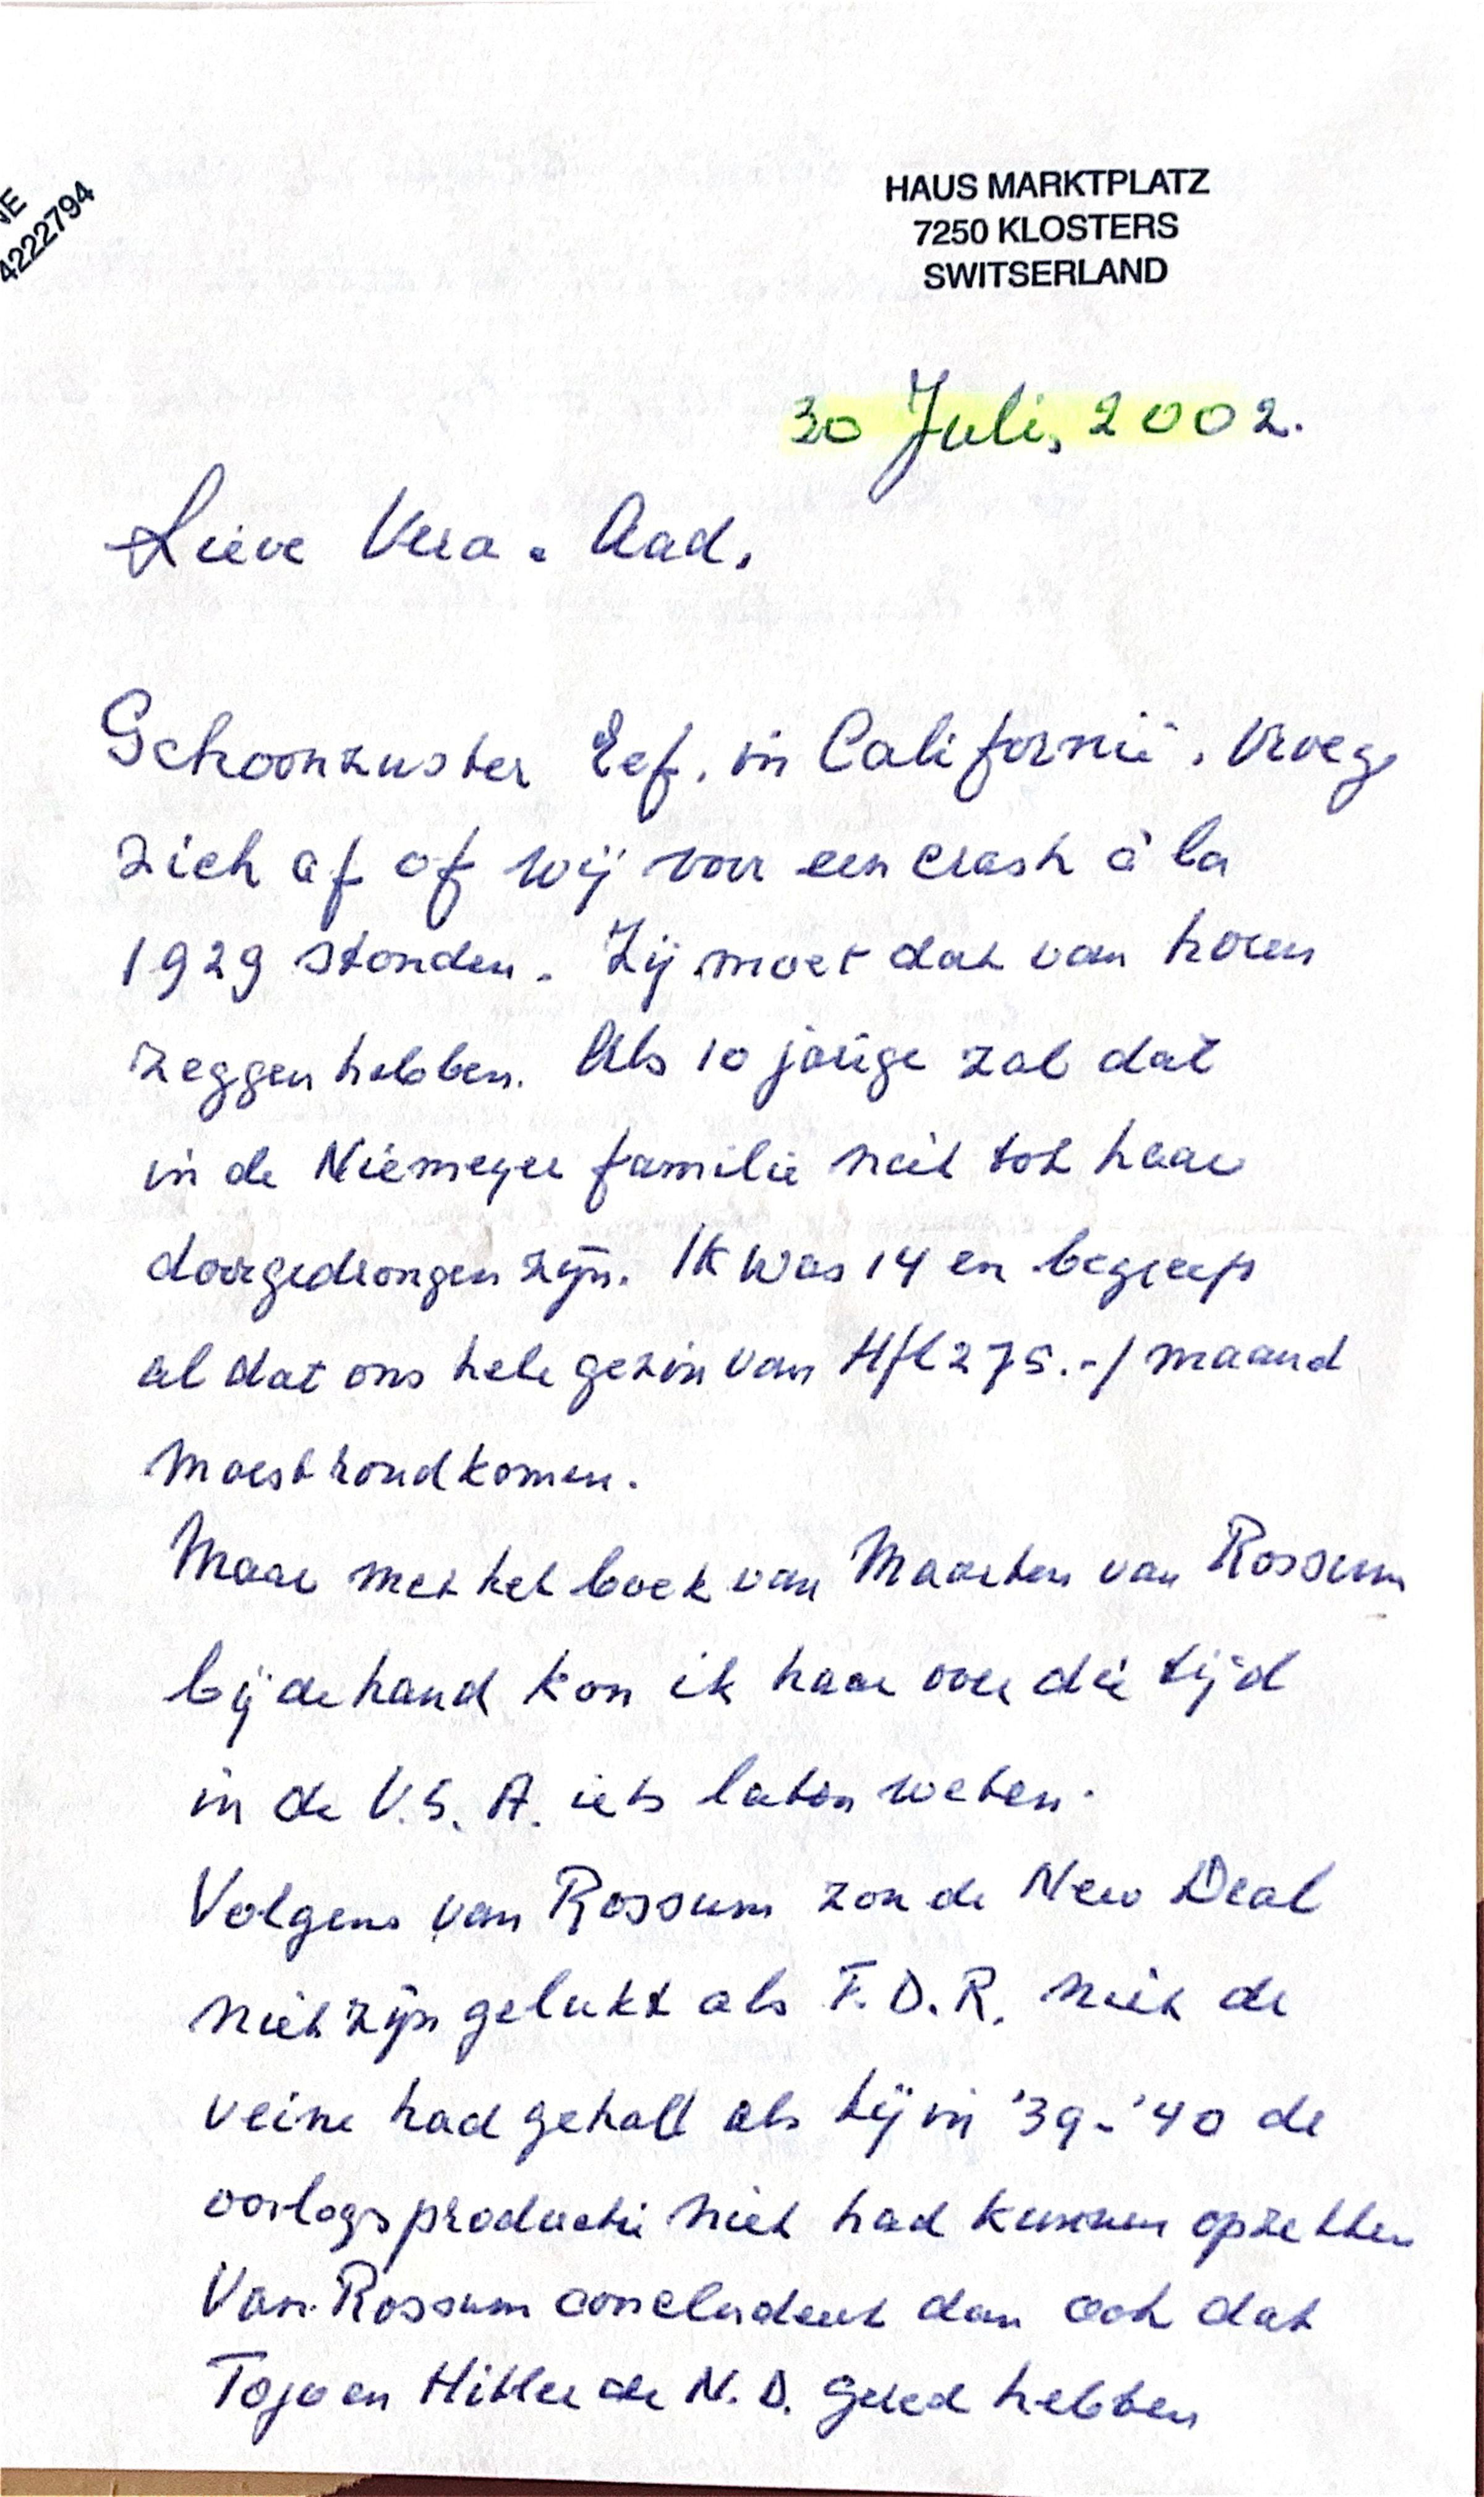 NE
4222794
HAUS MARKTPLATZ
7250 KLOSTERS
SWITSERLAND
30 Juli, 2002.
Lieve Vera. Aad,
Schoonzuster Eef, in Californië, vroeg
zich af of wij voor een crash à la
1929 stonden. Zij moet dat van horen
zeggen hebben. Als 10 jarige zal dat
in de Niemeyer familie niet tot haar
doorgedrongen zijn. Ik was 14 en begreep
al dat ons hele gezin van Hfl 275.-/maand
moest rondkomen.
Maar met het boek van Maarten van Rossum
bij de hand kon ik haar over die tijd
in de V.S.A. iets laten weten.
Volgens van Rossum zou de New Deal
niet zijn gelukt als F.D.R. niet de
veine had gehad als hij in '39-'40 de
oorlogsproductie niet had kunnen opzetten
Van Rossum concludeert dan ook dat
Tojo en Hitler de N.D. gered hebben